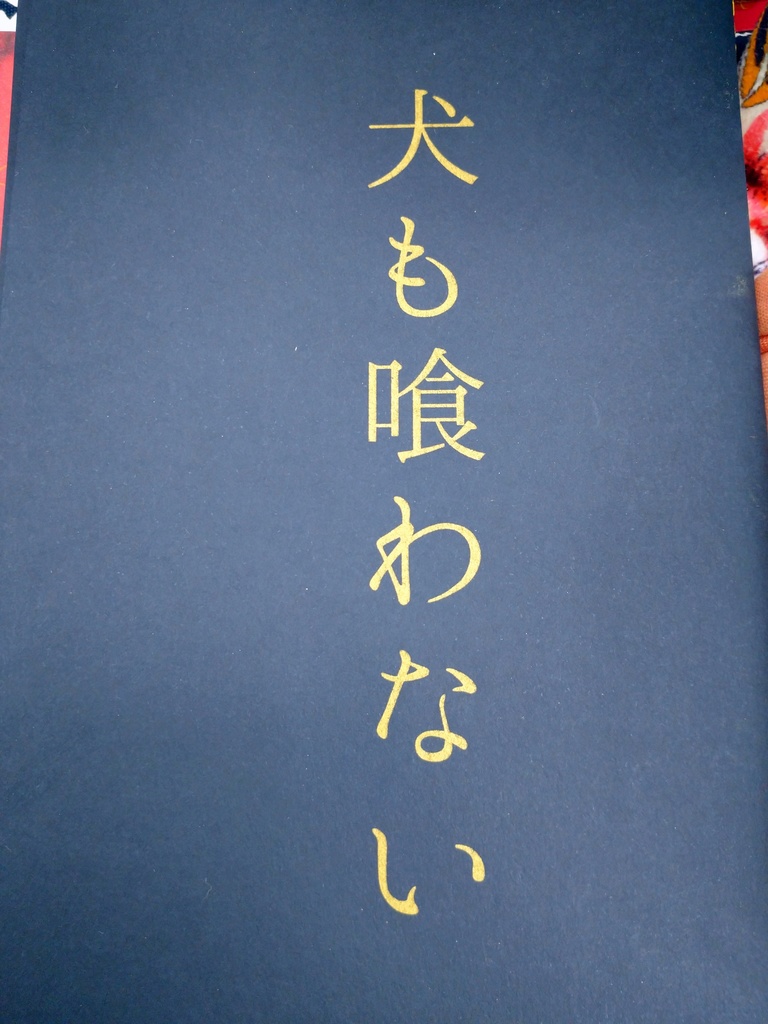 犬も喰わない